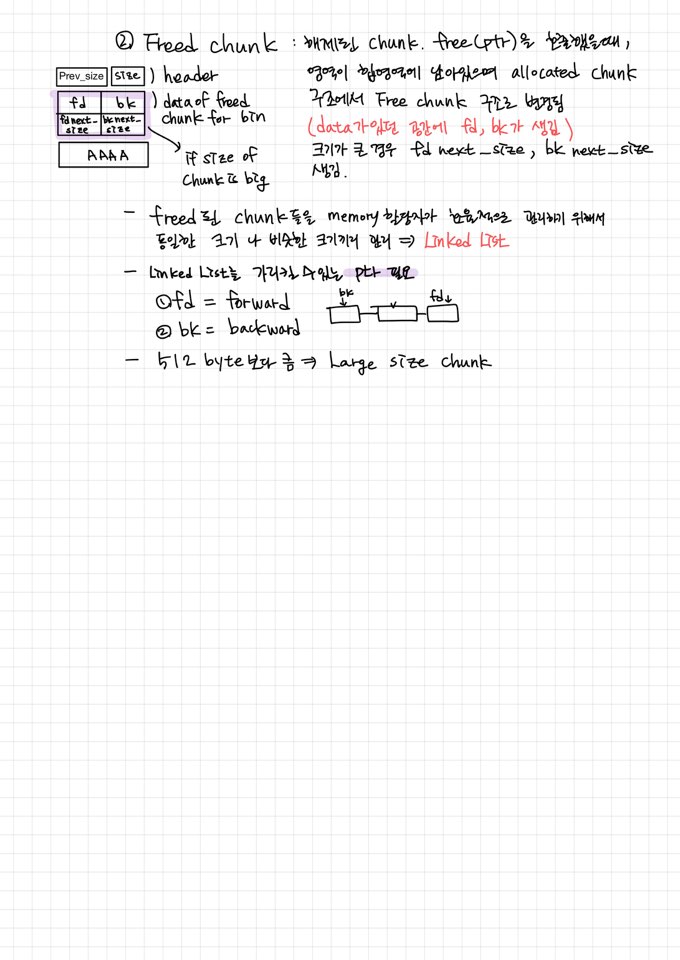 ② Freed chunk : 해제된 chunk. free(ptr)을 호출했을때,
영역이 힙영역에 남아있으며 allocated chunk
구조에서 Free chunk 구조로 변경됨
(data가 있던 공간에 fd, bk가 생김)
크기가 큰 경우 fd next_size, bk next_size
생김.
Prev_size size ) header
fd bk ) data of freed
chunk for bin
fd next_ bk next_
size size
AAAA
if size of
chunk is big
- freed된 chunk들을 memory 할당자가 효율적으로 관리하기 위해서
동일한 크기 나 비슷한 크기끼리 관리 ⇒ Linked List
- Linked List를 가리킬 수 있는 ptr 필요
① fd = forward
② bk = backward
bk fd
- 512 byte보다 큼 ⇒ Large size chunk